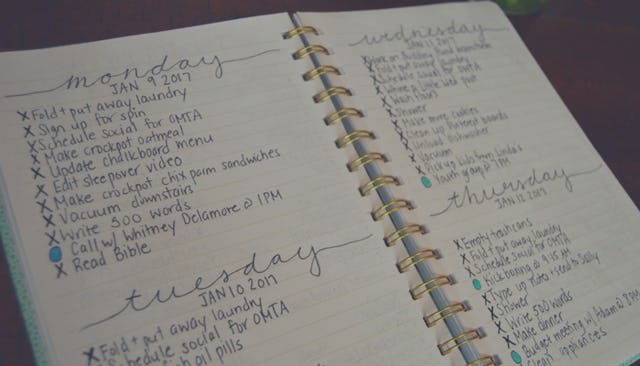 monday
JAN 9 2017
X Fold + put away laundry
X Sign up for spin
X Schedule social for OMTA
X Make crockpot oatmeal
X Update chalkboard menu
X Edit sleepover video
X Make crockpot chix parm sandwiches
X Vacuum downstairs
X Write 500 words
Call w/ Whitney Delamore @ 1PM
X Read Bible
tuesday
JAN 10 2017
X Fold + put away laundry
Schedule social for OMTA
oil pills
wednesday
JAN 11 2017
X Work on
X Fold + put away laundry
X Schedule social for OMTA
X Write a
X Wash hair
X Shower
X Make more cookies
X Clean up Pinterest boards
X Unload dishwasher
X Vacuum
X Pick up from Linda's
Youth group @ 7PM
thursday
JAN 12 2017
X Empty trashcans
X Fold + put away laundry
X Schedule social for OMTA
Kickboxing @ 9:45 AM
X Type up notes + send to Sally
X Shower
X Write 500 words
X Make dinner
Budget meeting w/ Adam @ 7PM
Clean appliances